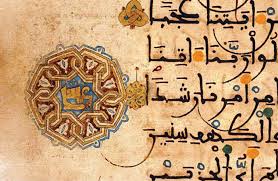 من ءايتنا عجبا
لوا ربنا ءاتنا
من امرنا رشدا
الكهف سنين
اي الحز